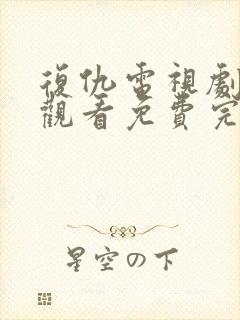 復仇電視劇
觀看免費完
星空の下